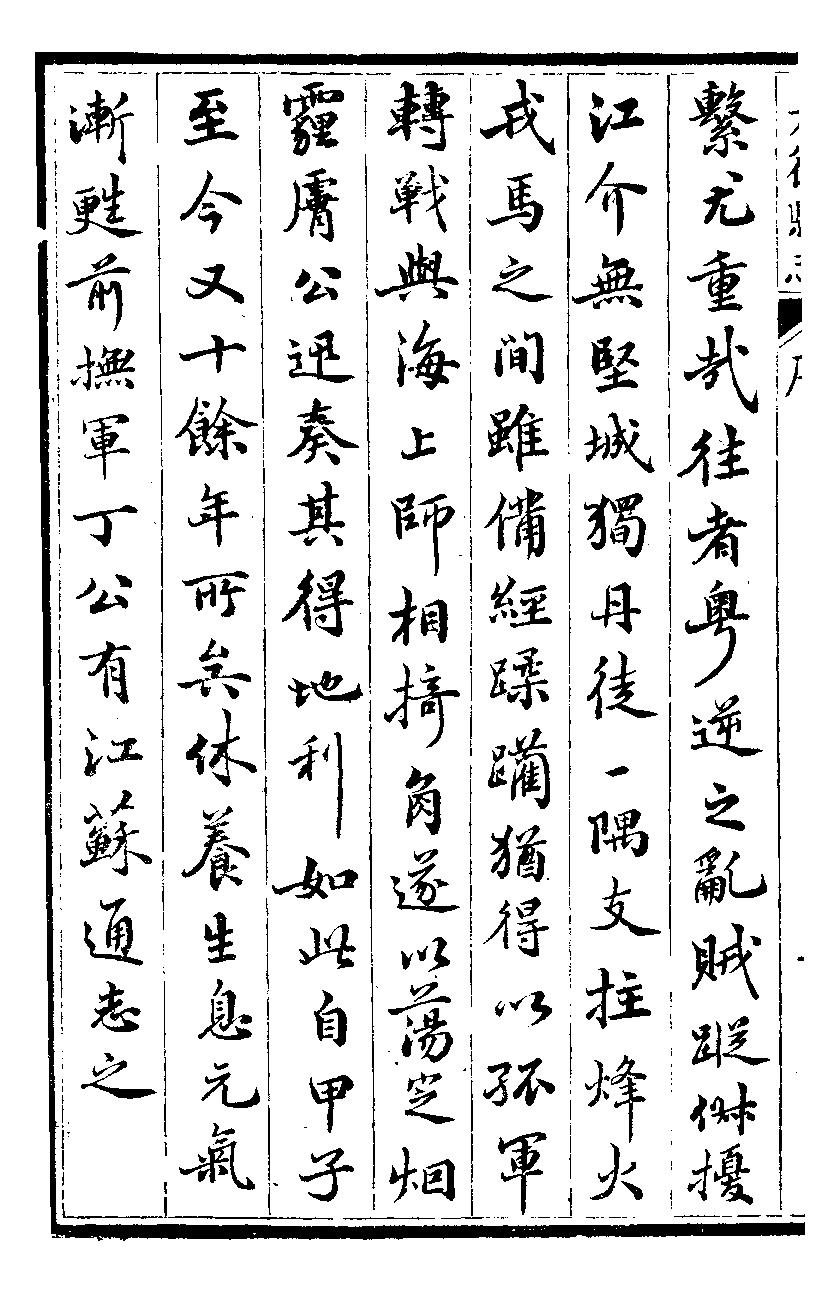 繫尤重哉往者粵逆之亂賊蹤俶擾
江介無堅城獨丹徒一隅支拄烽火
戎馬之間雖備經蹂躪猶得以孤軍
轉戰與海上師相掎角遂以蕩㝎烟
霾膚公迅奏其得地利如此自甲子
至今又十餘年所矣休養生息元氣
漸甦前撫軍丁公有江蘇通志之